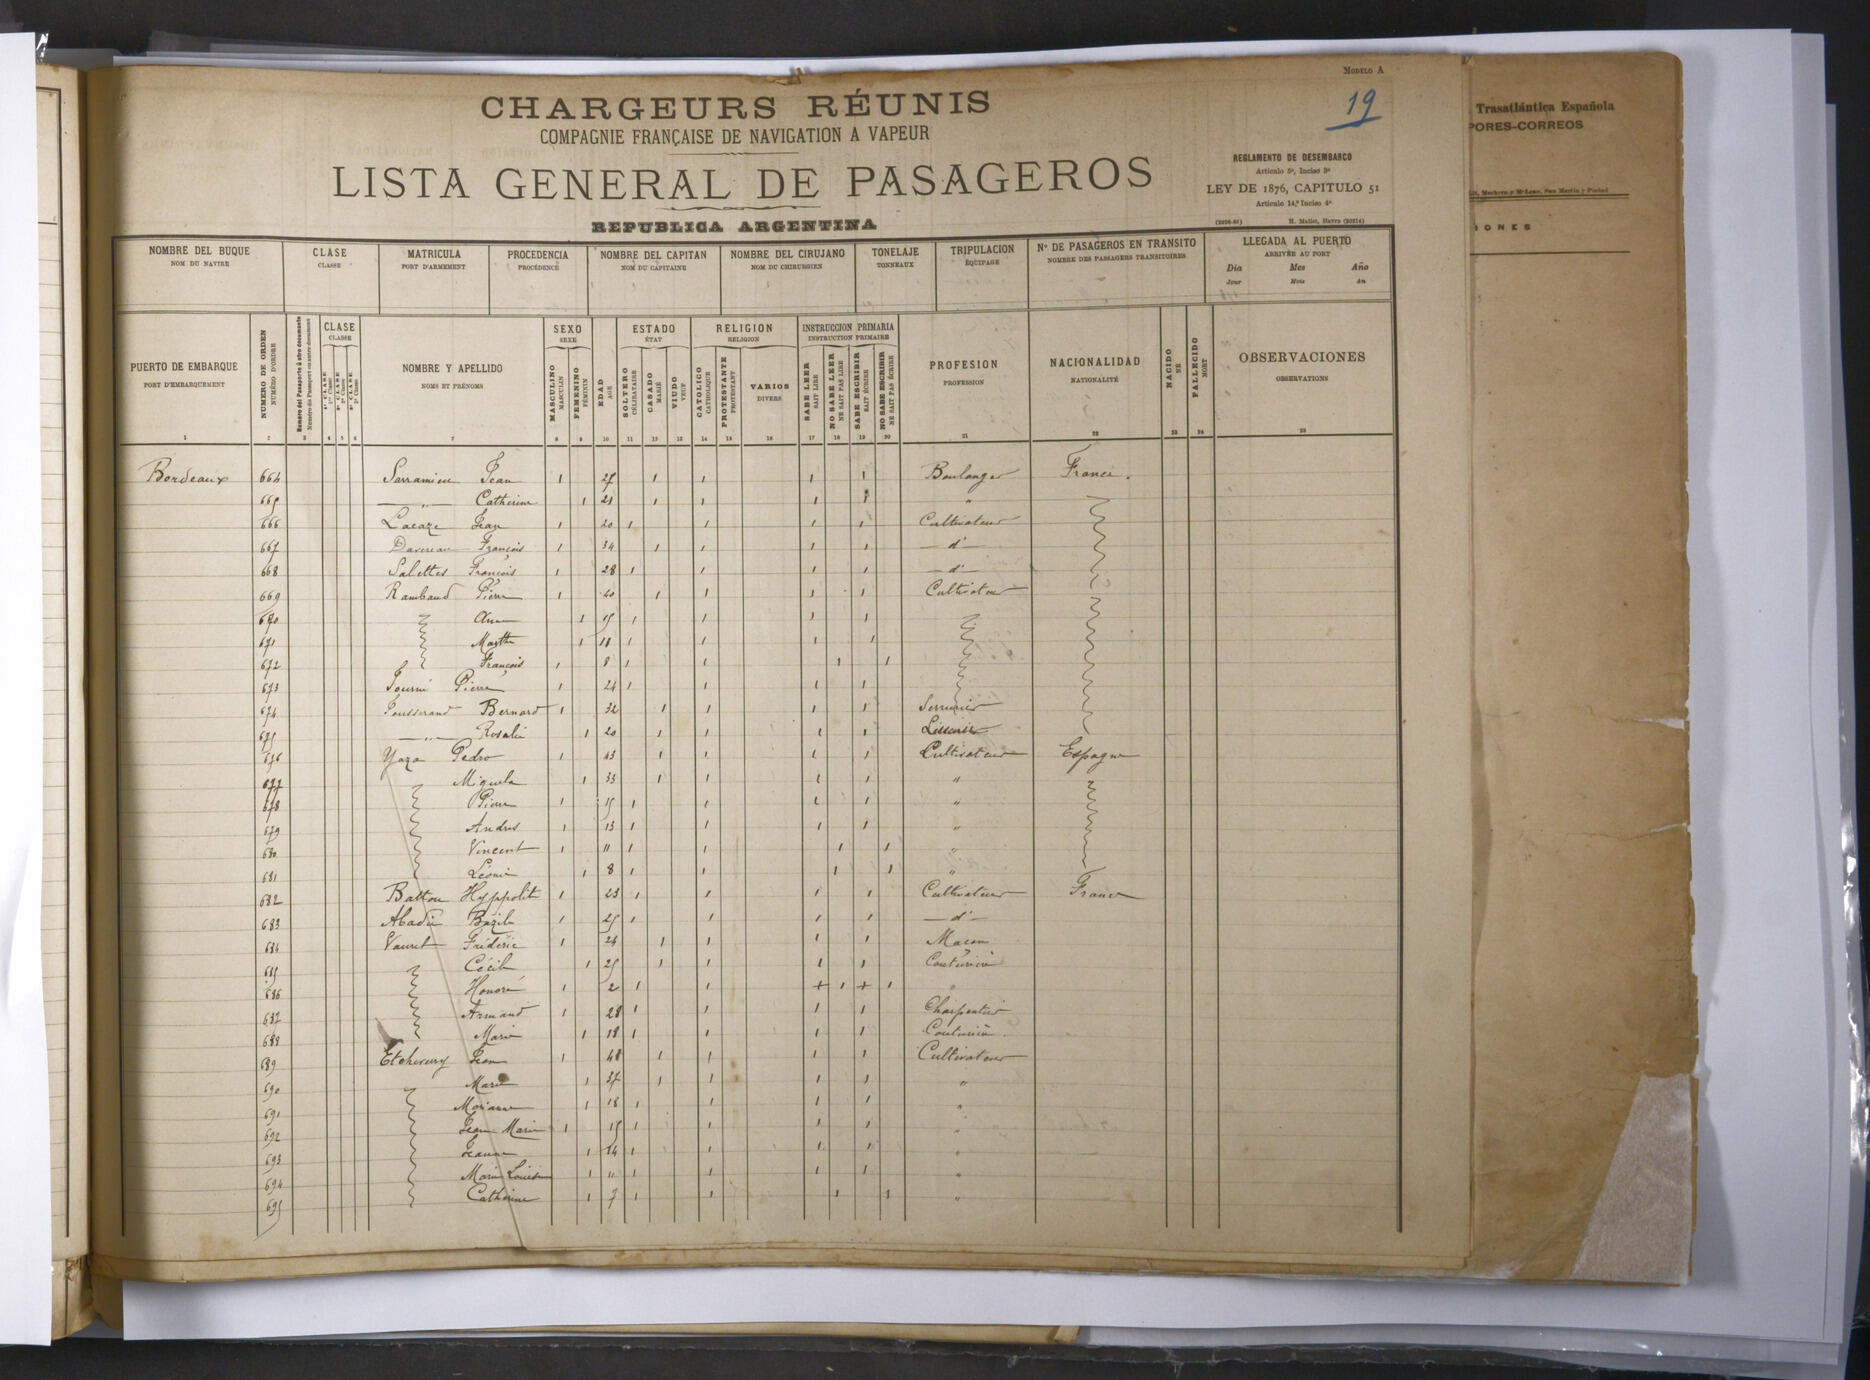 MODELO A
19
CHARGEURS RÉUNIS
COMPAGNIE FRANÇAISE DE NAVIGATION A VAPEUR
LISTA GENERAL DE PASAGEROS
REPUBLICA ARGENTINA
REGLAMENTO DE DESEMBARCO
Artículo 5º, Inciso 3º
LEY DE 1876, CAPITULO 51
Artículo 14,º Inciso 4º
Trasatlántica Española
PORES-CORREOS
IONES
NOMBRE DEL BUQUE CLASE MATRICULA PROCEDENCIA NOMBRE DEL CAPITAN NOMBRE DEL CIRUJANO TONELAJE TRIPULACION Nº DE PASAGEROS EN TRANSITO LLEGADA AL PUERTO
NOM DU NAVIRE CLASSE PORT D'ARMEMENT PROCÉDENCE NOM DU CAPITAINE NOM DU CHIRURGIEN TONNEAUX ÉQUIPAGE NOMBRE DES PASSAGERS TRANSITOIRES ARRIVÉE AU PORT
Dia Mes Año
Jour Mois An
PUERTO DE EMBARQUE NUMERO DE ORDEN CLASE NOMBRE Y APELLIDO SEXO EDAD ESTADO RELIGION INSTRUCCION PRIMARIA PROFESION NACIONALIDAD NACIDO FALLECIDO OBSERVACIONES
PORT D'EMBARQUEMENT NUMÉRO D'ORDRE CLASSE NOMS ET PRÉNOMS SEXE AGE ÉTAT RELIGION INSTRUCTION PRIMAIRE PROFESSION NATIONALITÉ NÉ MORT OBSERVATIONS
MASCULINO FEMENINO SOLTERO CASADO VIUDO CATOLICO PROTESTANTE VARIOS SABE LEER NO SABE LEER SABE ESCRIBIR NO SABE ESCRIBIR
MASCULIN FÉMININ CÉLIBATAIRE MARIÉ VEUF CATHOLIQUE PROTESTANT DIVERS SAIT LIRE NE SAIT PAS LIRE SAIT ÉCRIRE NE SAIT PAS ÉCRIRE
1 2 3 4 5 6 7 8 9 10 11 12 13 14 15 16 17 18 19 20 21 22 23 24 25
Bordeaux 664 Sarramieu Jean 1 27 1 1 1 1 Boulanger France.
665 — " — Catherine 1 21 1 1 1 1 "
666 Lacaze Jean 1 20 1 1 1 1 Cultivateur
667 François 1 34 1 1 1 1 — d° —
668 Salettes François 1 28 1 1 1 1 — d° —
669 Rambaud Pierre 1 40 1 1 1 1 Cultivateur
670 Ana 1 19 1 1 1 1
671 Marthe 1 18 1 1 1 1
672 François 1 8 1 1 1 1
673 Pierre 1 24 1 1 1 1
674 Bernard 1 32 1 1 1 1 Serrurier
675 — " — Rosalie 1 20 1 1 1 1
676 Yaza Pedro 1 43 1 1 1 1 Cultivateur Espagne
677 Miquela 1 33 1 1 1 1 "
678 Pierre 1 15 1 1 1 1 "
679 Andres 1 13 1 1 1 1 "
680 Vincent 1 11 1 1 1 1 "
681 Léonie 1 8 1 1 1 1 "
682 Battou Hyppolit 1 23 1 1 1 1 Cultivateur France
683 Abadie Bazile 1 25 1 1 1 1 — d° —
684 Vauret Frédéric 1 24 1 1 1 1 Maçon
685 Cécile 1 25 1 1 1 1 Couturière
686 Honoré 1 2 1 1 + 1 + 1 "
687 Armand 1 28 1 1 1 1 Charpentier
688 Marie 1 18 1 1 1 1 Couturière
689 Etcheverry Jean 1 48 1 1 1 1 Cultivateur
690 Marie 1 37 1 1 1 1 "
691 Marianne 1 18 1 1 1 1 "
692 Jean-Marie 1 15 1 1 1 1 "
693 Jeanne 1 14 1 1 1 1 "
694 Marie Louise 1 11 1 1 1 1 "
695 Catherine 1 7 1 1 1 1 "